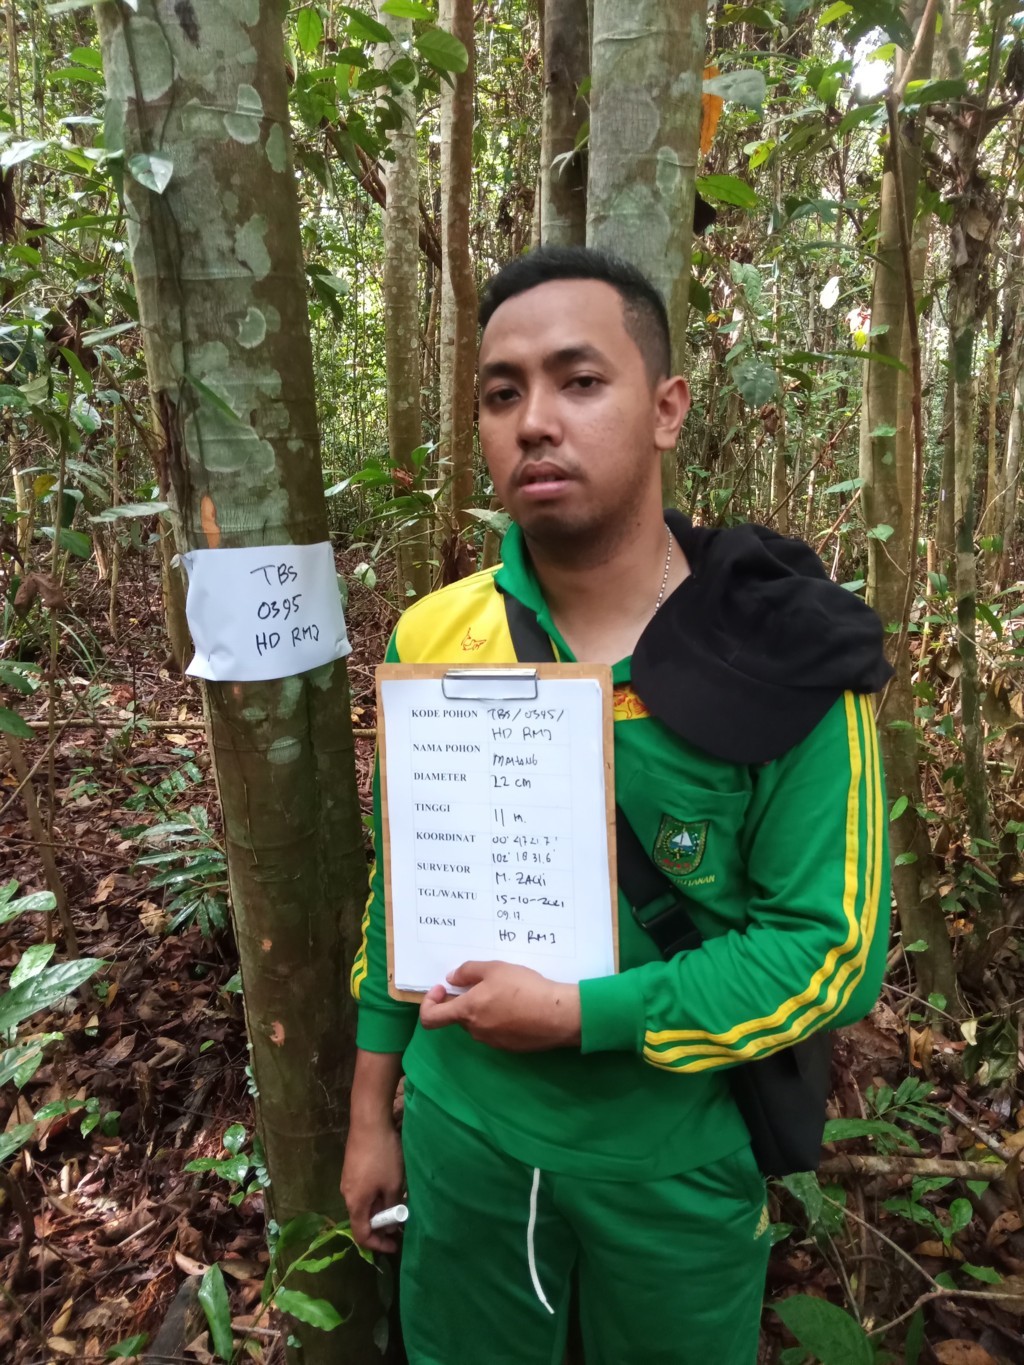 TBS
0395
HD RMJ
KODE POHON TBS/0395/
HD RMJ
NAMA POHON MAHANG
DIAMETER 22 cm
TINGGI 11 m.
KOORDINAT 00° 47' 21.7"
102° 18' 31,6"
SURVEYOR M. ZAQI
TGL/WAKTU 15-10-2021
09.17
LOKASI HD RMJ